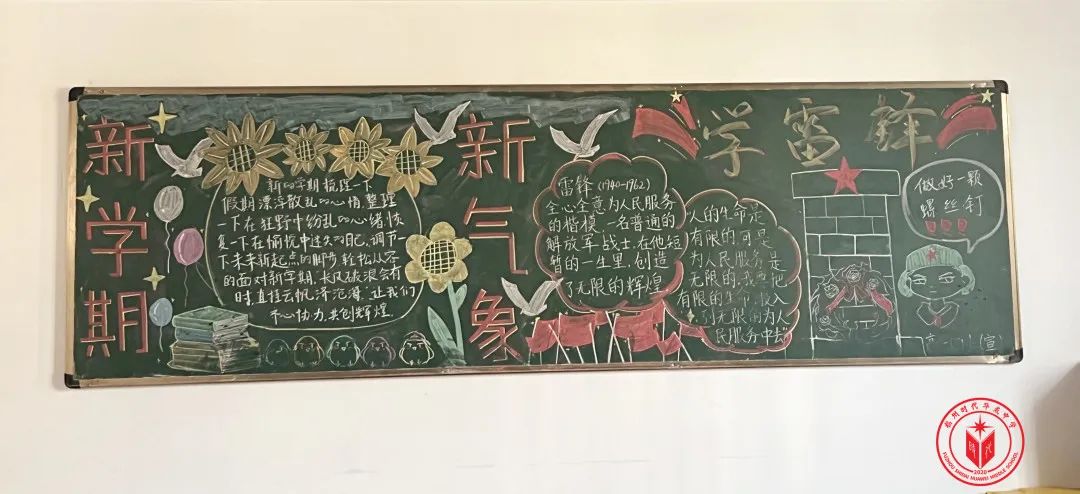 新学期
新的学期梳理一下
假期漂浮散乱的心情,整理
一下在狂野中纷乱的心绪,恢
复一下在愉悦中迷失的自己,调节一
下未来新起点的脚步,轻松从容
的面对新学期。长风破浪会有
时,直挂云帆济沧海,让我们
齐心协力,共创辉煌。
新气象
学雷锋
雷锋(1940-1962)
全心全意为人民服务
的楷模,一名普通的
解放军战士,在他短
暂的一生里,创造
了无限的辉煌
人的生命是
有限的,可是
为人民服务是
无限的,我要把
有限的生命,投入
到无限的为人
民服务中去
做好一颗
螺丝钉
福州时代华威中学
FUZHOU SHIDAI HUAWEI MIDDLE SCHOOL
2020